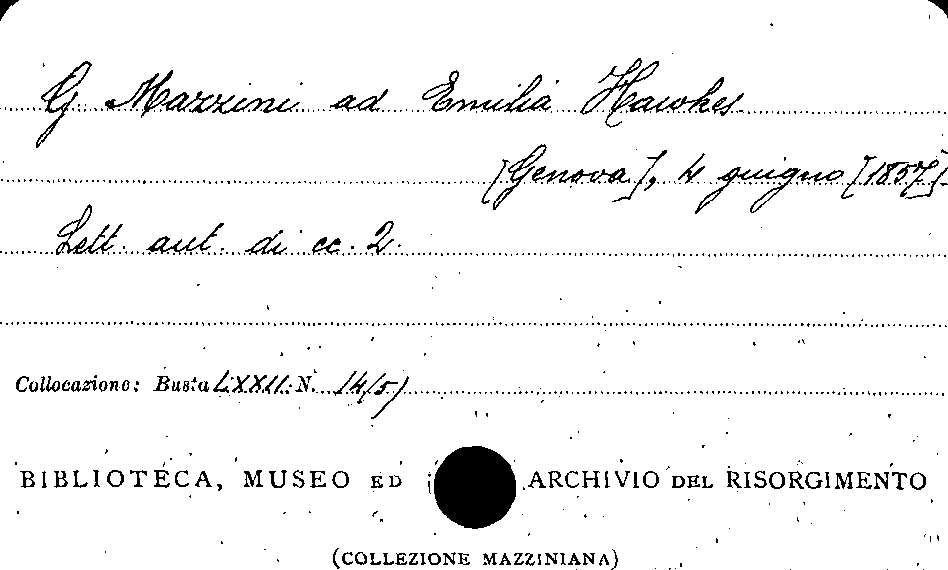 G. Mazzini ad Emilia Hawkes
[Genova], 4 giugno [1857].
Lett. aut. di cc. 2.
Collocazione: Busta LXXII. N. 14/5)
BIBLIOTECA, MUSEO ED ARCHIVIO DEL RISORGIMENTO
(COLLEZIONE MAZZINIANA)